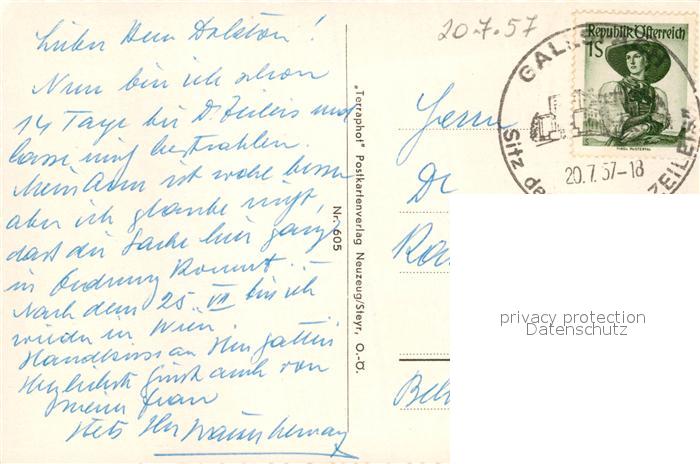 Lieber Herr Doktor!
Nun bin ich schon
14 Tage bei Dr Zeileis und
lasse mich bestrahlen.
Mein Arm ist wohl besser
aber ich glaube nicht,
dass die Sache hier ganz
in Ordnung kommt.
Nach dem 25. VII bin ich
wieder in Wien.
Handkuss an Ihre Gattin
Herzlichst grüsst auch von
meiner Frau
stets Ihr
"Terraphot" Postkartenverlag Neuzeug/Steyr, O.-Ö.
Nr. 605
20.7.57
Republik Österreich
1S
GAL
Sitz de
ZEILEIS"
20.7.57-18
Herrn
Dr
Bel
privacy protection
Datenschutz